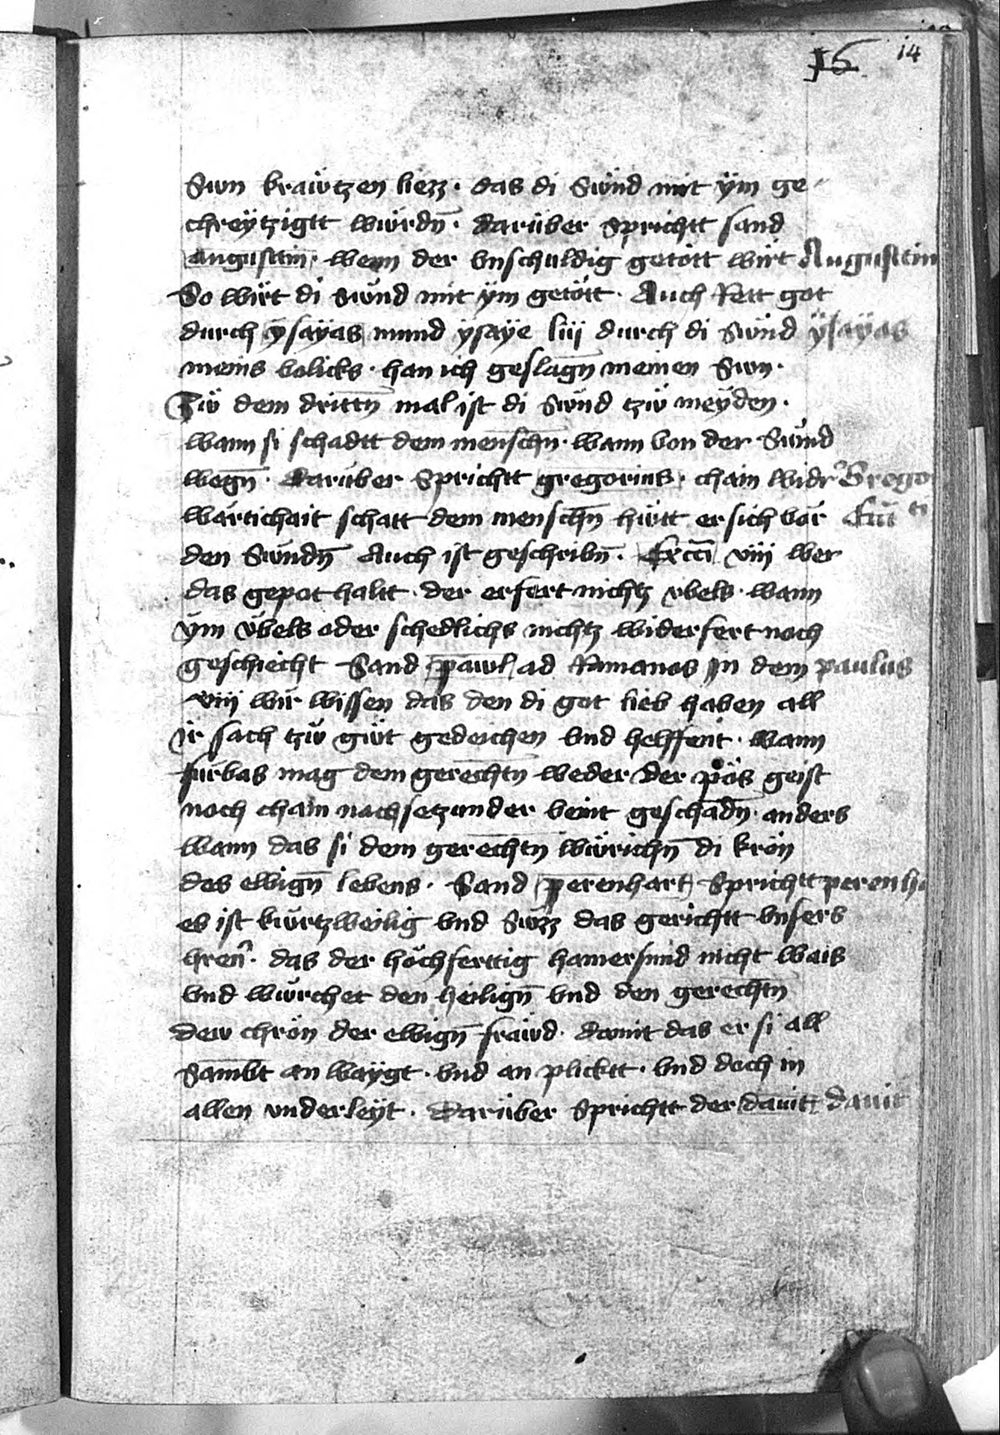 16 14
Swn kraẅtzen liezz · das di Sẅnd mit ÿm ge-
chreÿtzigtt wurdn̄ · darüber Sprichtt sand
augustin · wenn der vnschuldig getött wirt Augustin
So wirt di sẅnd mit ÿm getött · Auch Rett got
durch ysaÿas mund ysaÿe liij durch di Sẅnd ÿsaÿas
meins volicks · han ich geslagn̄ meinen Swn ·
Zw dem drittn̄ mal ist di Sẅnd tzw meÿden ·
wann si schadtt dem menschn̄ · wann von der Sẅnd
wegn̄ · darüber Sprichtt gregorius · chain widr Grego
wärtichait schatt dem menschn̄ hütt er sich vor
den Sẅndn̄ Auch ist geschribn̄ · Ecc̄i viij wer
das gepot haltt · der erfert nichtz vbels · wann
ÿm übels oder schedlichs nichtz widerfert noch
geschiecht Sand pawl ad Romanos in dem paulus
viij wir wissen das den di got lieb haben all
ir sach tzw güt gedeichen vnd helffent · wann
fürbas mag dem gerechtn̄ weder der pös geist
noch chain nachsetzunder veint geschadn̄ · anders
wann das si dem gerechtn̄ würichn̄ di krön
des ewign̄ lebens · Sand perenhart Sprichtt perenha
es ist kürtzweilig vnd Süzz das gerichtt vnsers
hren̄ · das der höchferttig hamersmid nicht wais
vnd würchet den heilign̄ vnd den gerechtn̄
dew chrön der ewign̄ frawd · damit das er si all
Sambt an waÿgt · vnd an plicktt · vnd doch in
allen vnderleÿt · Darüber Sprichtt der dauit dauit